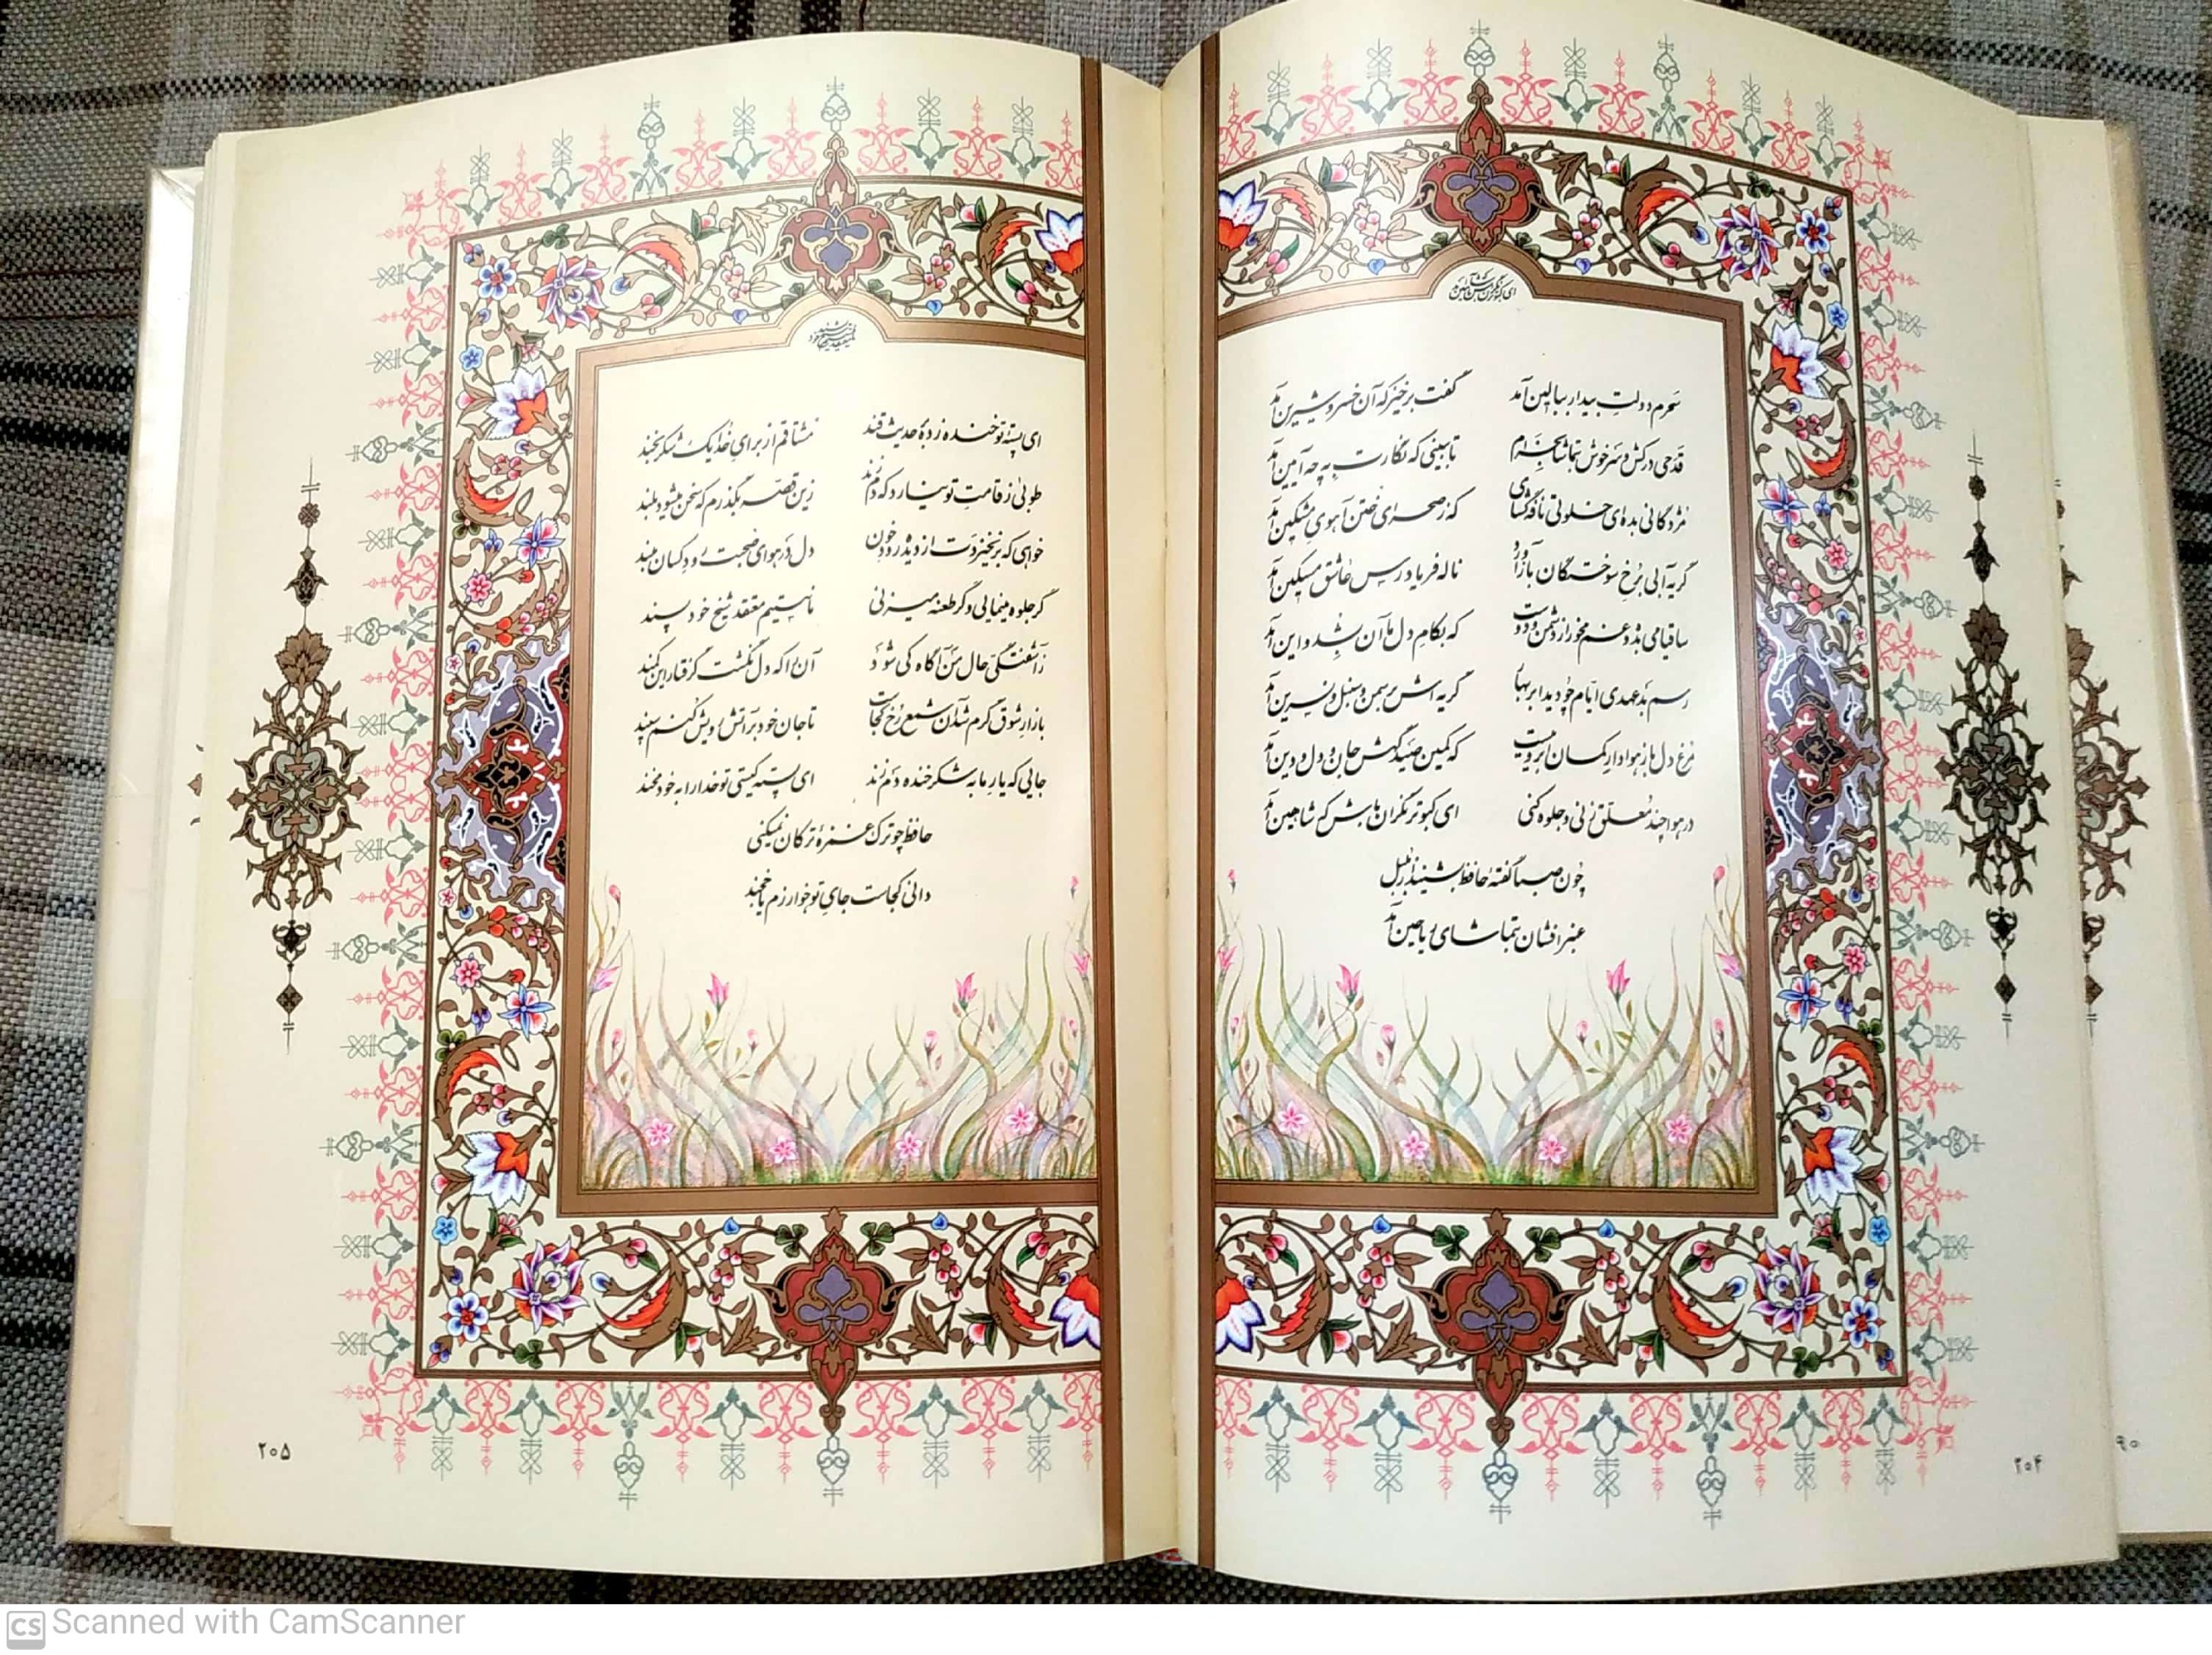 ای کبوتر نگران باش که شاهین آمد
سحرم دولت بیدار ببالین آمد گفت برخیز که آن خسرو شیرین آمد
قدحی درکش و سرخوش بتماشا بخرام تا ببینی که نگارت به چه آیین آمد
مژدگانی بده ای خلوتی نافه گشای که ز صحرای ختن آهوی مشکین آمد
گریه آبی برخ سوختگان باز آورد ناله فریادرس عاشق مسکین آمد
ساقیا می بده و غم مخور از دشمن و دوست که بکام دل ما آن بشد و این آمد
رسم بدعهدی ایام چو دید ابر بهار گریه اش بر سمن و سنبل و نسرین آمد
مرغ دل باز هوادار کمان ابرویست که کمین صیدگهش جان و دل و دین آمد
در هوا چند معلق زنی و جلوه کنی ای کبوتر نگران باش که شاهین آمد
چون صبا گفته حافظ بشنید از بلبل
عنبرافشان بتماشای ریاحین آمد
۲۰۴
ما نیستیم معتقد شیخ خودپسند
ای پسته تو خنده زده بر حدیث قند مشتاقم از برای خدا یک شکر بخند
طوبی ز قامت تو نیارد که دم زند زین قصه بگذرم که سخن میشود بلند
خواهی که برنخیزدت از دیده رود خون دل در هوای صحبت رود کسان مبند
گر جلوه مینمایی و گر طعنه میزنی ما نیستیم معتقد شیخ خودپسند
ز آشفتگی حال من آگاه کی شود آن را که دل نگشت گرفتار این کمند
بازار شوق گرم شد آن شمع رخ کجاست تا جان خود بر آتش رویش کنم سپند
جایی که یار ما به شکرخنده دم زند ای پسته کیستی تو خدا را به خود مخند
حافظ چو ترک غمزه ترکان نمیکنی
دانی کجاست جای تو خوارزم یا خجند
۲۰۵
Scanned with CamScanner
CS